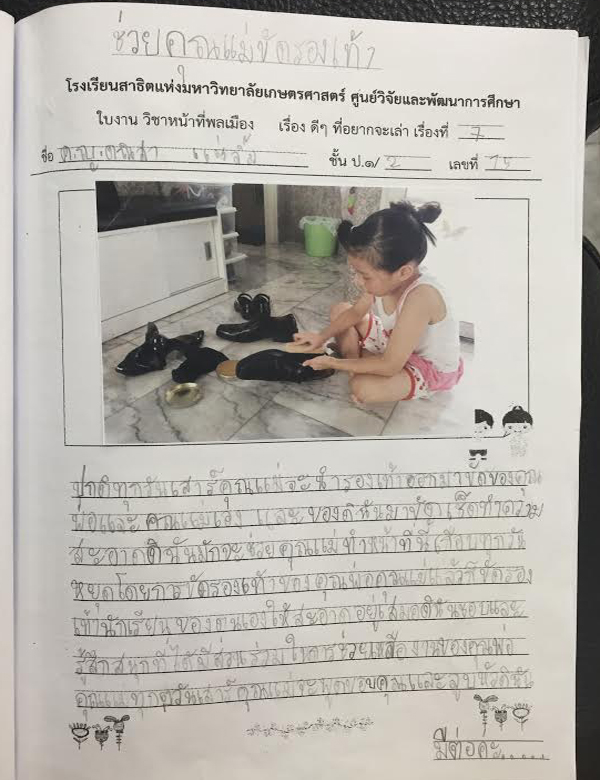 ช่วยคุณแม่ขัดรองเท้า
โรงเรียนสาธิตแห่งมหาวิทยาลัยเกษตรศาสตร์ ศูนย์วิจัยและพัฒนาการศึกษา
ใบงาน วิชาหน้าที่พลเมือง เรื่อง ดีๆ ที่อยากจะเล่า เรื่องที่ 7
ชื่อ ด.ญ. ชั้น ป.๑/ 2 เลขที่ 15
ปกติทุกวันเสาร์คุณแม่จะนำรองเท้าออกมาขัดของคุณ
พ่อและคุณแม่เอง และของดิฉันมาขัด เช็ดทำความ
สะอาดดิฉันมักจะช่วยคุณแม่ทำหน้าที่นี้เกือบทุกวัน
หยุดโดยการขัดรองเท้าของคุณพ่อคุณแม่แล้วก็ขัดรอง
เท้านักเรียนของตนเองให้สะอาดอยู่เสมอดิฉันชอบและ
รู้สึกสนุกที่ได้มีส่วนร่วมในการช่วยเหลืองานของคุณพ่อ
คุณแม่ทุกวันเสาร์คุณแม่จะพูดขอบคุณและลูบหัวดิฉัน
มีต่อค่ะ.....